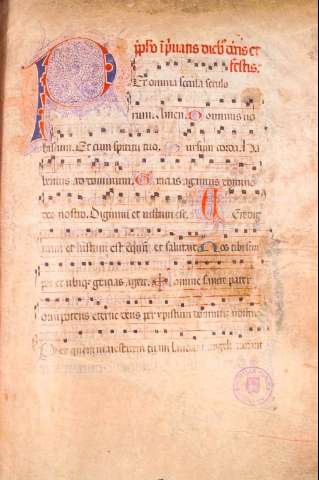 Er omnia secula seculo
rum. Amen. Dominus uo
biscum. Et cum spiritu tuo. Sursum corda. Ha
bemus ad dominum. Gracias agamus domino
deo nostro. Dignum et iustum est. Vere dig
num et iustum est equum et salutare Nos tibi sem
per et ubique gracias agere. Domine sancte pater
omnipotens eterne deus per xpistum dominum nostrum
Per quem maiestatem tuam laudant angeli